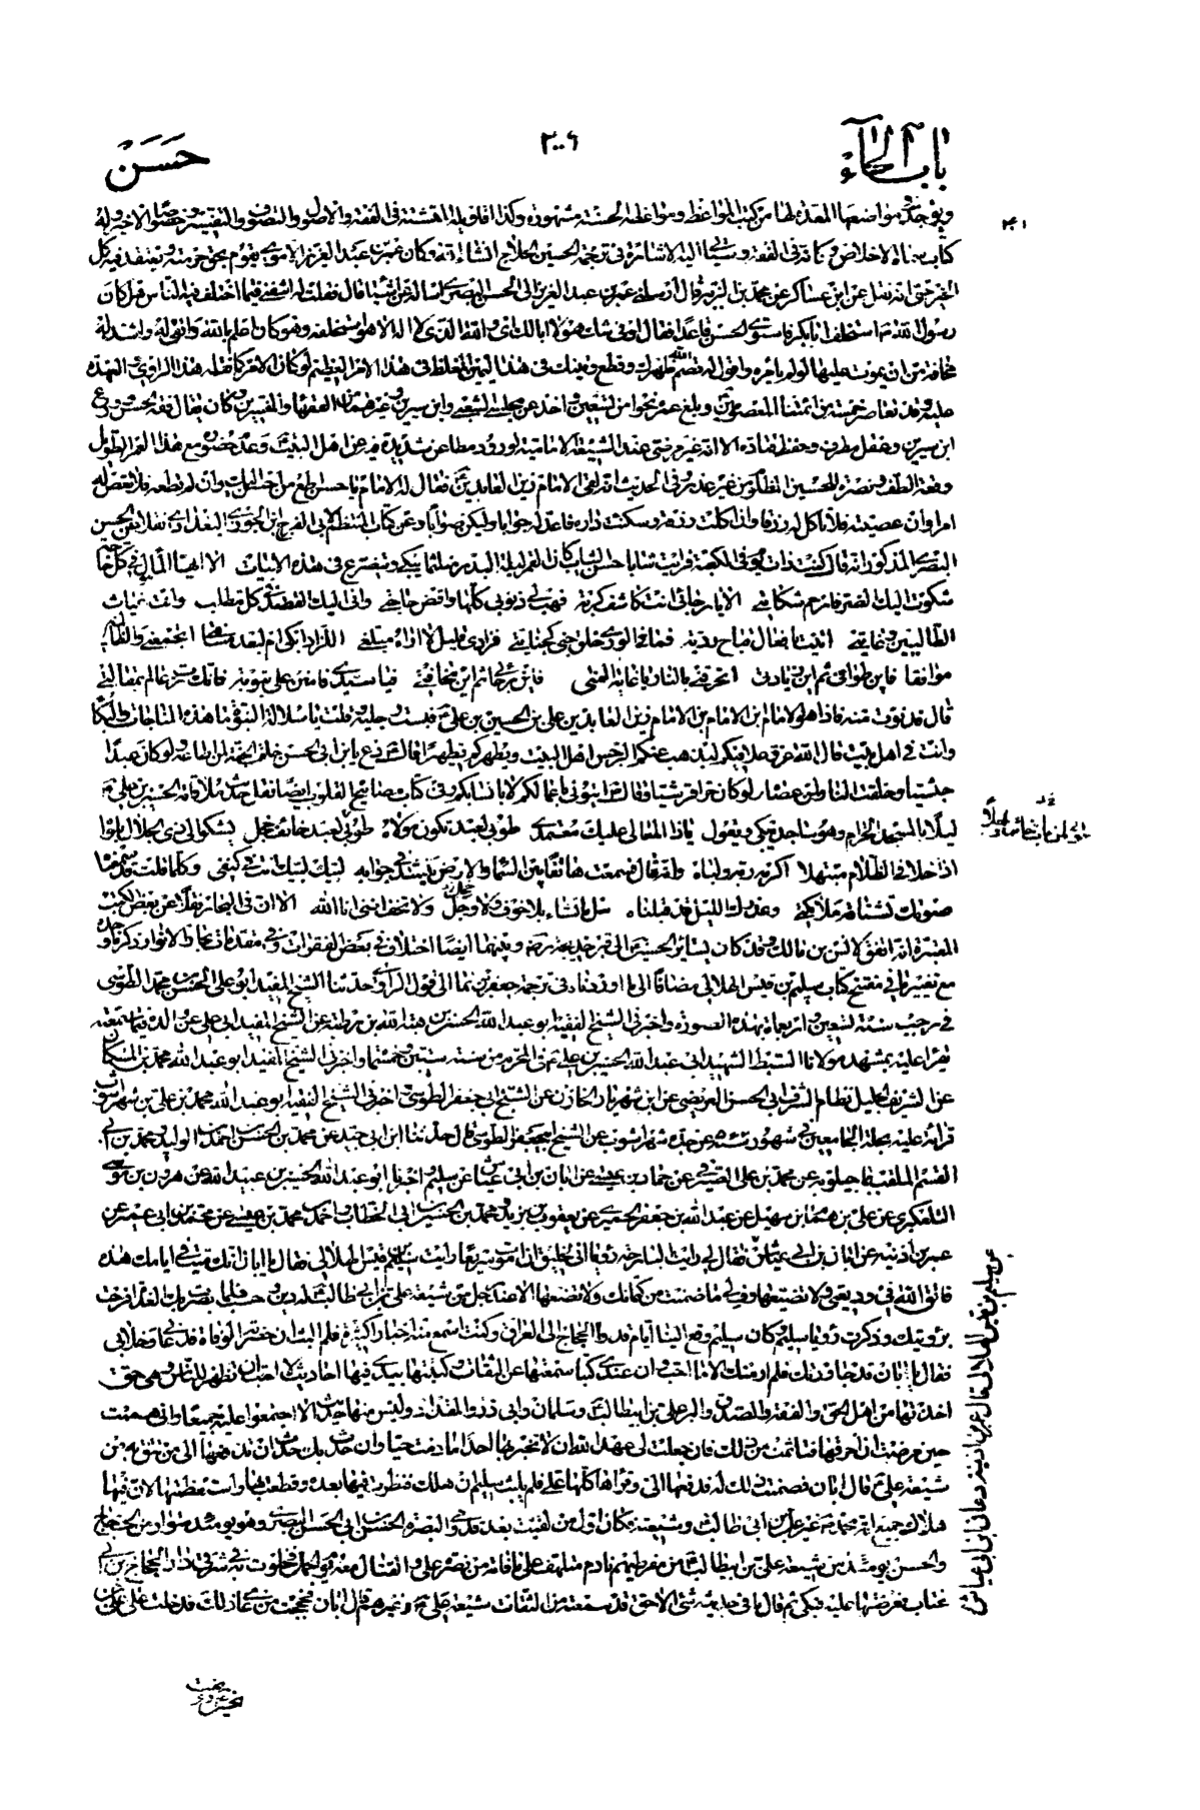 باب الحاء
٢٠٦
حَسَن
ويوجد في مواضعها المعدة لها من كتب المواعظ ومواعظه الحسنة مشهورة وكذا اقاويله في الفقه والاصول والتصوف والتفسير وخصوصا الاخير وله
كتاب سماه الاخلاص وكانه في الفقه وسياتي اليه الاشارة في ترجمة الحسين الحلاج انشاء الله وكان عمر بن عبد العزيز الاموي يقوم بحق حرمته ويعتقد فيه كل
الخير حتى انه نقل عن ابن عساكر عن محمد بن الزبير قال ارسلني عمر بن عبد العزيز الى الحسن البصري اساله عن اشياء قال فقلت له اشفني فيما اختلف فيه الناس هل كان
رسول الله استخلف ابا بكر فاستوى الحسن قاعدا فقال او في شك هو لا ابا لك اي والله الذي لا اله الا هو استخلفه وهو كان اعلم بالله واتقى له واشد له
مخافة من ان يموت عليها لو لم يامره واقول له قصم الله ظهرك وقطع وتينك في هذا اليمين المغلظ في هذا الامر العظيم لو كان الامر كما نقله هذا الراوي والعهدة
عليه وقد تعاصر خمسة من ائمتنا المعصومين وبلغ عمره نحوا من تسعين واخذ عن مجلسه الشعبي وابن سيرين وغيرهما من الفقهاء والمفسرين وكان يقال فقه الحسن وورع
ابن سيرين وعقل مطرف وحفظ قتادة الا انه غير مرضي عند الشيعة الامامية لورود مطاعن شديدة فيه عن اهل البيت وعدم حضوره مع هذا العمر الطويل
وقعة الطف ونصرته للحسين المظلوم من غير عذر وفي الحديث انه لقي الامام زين العابدين فقال له الامام يا حسن اطع من احسن اليك وان لم تطعه فلا تعص له
امرا وان عصيته فلا تاكل له رزقا واذا اكلت رزقه وسكنت داره فاعد له جوابا وليكن صوابا وعن كتاب المنتظم لابي الفرج ابن الجوزي البغدادي نقلا عن الحسن
البصري المذكور انه قال كنت ذات يوم في الكعبة فرايت شابا حسن الشباب كانه القمر ليلة البدر ملتما يبكي ويتضرع في هذه الابيات الا ايها المامول في كل حاجتي
شكوت اليك الضر فارحم شكايتي الا يا رجائي انت كاشف كربتي فهب لي ذنوبي كلها واقض حاجتي واني اليك القصد في كل مطلب وانت غياث
الطالبين وغايتي اتيت بافعال قباح ردية فما في الورى خلق جنى كجنايتي فزادي قليل لا اراه مبلغي اللزاد ابكي ام لبعد مسافتي اتجمعني والظالمين
مواقفا فاين طوافي ثم اين زيارتي اتحرقني بالنار يا غاية المنى فاين رجائي ثم اين مخافتي فيا سيدي فامنن علي بتوبة فانك رب عالم بمقالتي
قال فدنوت منه فاذا هو الامام بن الامام بن الامام زين العابدين علي بن الحسين بن علي فقبلت رجليه وقلت يا سلالة النبوة ما هذه المناجات والبكاء
وانت في اهل بيت قال الله عز وجل فيكم ليذهب عنكم الرجس اهل البيت ويطهركم تطهيرا قال دع يا ابن ابي الحسن خلقت الجنة لمن اطاعه ولو كان عبدا
حبشيا وخلقت النار لمن عصاه ولو كان حرا قرشيا وقال ايتوني باعمالكم لا بانسابكم وفي كتاب مصابيح القلوب ايضا نقل حديث ملاقاة الحسين بن علي
ليلا بالمسجد الحرام وهو ساجد يبكي ويقول يا ذا المعالي عليك معتمدي طوبى لعبد تكون مولاه طوبى لعبد خائف خجل يشكو الى ذي الجلال بلواه
اذا خلا في الظلام مبتهلا اكرمه ربه ولباه وانه قال فسمعت هاتفا بين السماء والارض ينشد في جوابه لبيك لبيك انت في كنفي وكلما قلت قد سمعنا
صوتك تشتاقه ملائكتي وعذرك الليل قد قبلناه سل ما تشاء بلا خوف ولا وجل ولا تخف انني انا الله الا ان في البحار نقلا عن بعض الكتب
المعتبرة انه اتفق لانس بن مالك وقد كان يساير الحسين الى قبر خديجة وبينهما ايضا اختلاف في بعض الفقرات وفي مقدمات بحار الانوار ذكر
مع تغيير ما في مفتتح كتاب سليم بن قيس الهلالي مضافا الى ما اوردناه في ترجمة جعفر بن نما الى قول الراوي حدثنا الشيخ المفيد ابو علي الحسن بن محمد الطوسي
في رجب سنة تسعين واربعمائة بهذه الصورة واخبرني الشيخ الفقيه ابو عبد الله الحسن بن هبة الله بن رطبة عن الشيخ المفيد ابي علي عن والده فيما سمعته
يقرا عليه بمشهد مولانا السبط الشهيد ابي عبد الله الحسين بن علي في المحرم من سنة ستين وخمسمائة واخبرني الشيخ المقرئ ابو عبد الله محمد بن الكال
عن الشريف الجليل نظام الشرف ابي الحسن العريضي عن ابن شهريار الخازن عن الشيخ ابي جعفر الطوسي واخبرني الشيخ الفقيه ابو عبد الله محمد بن علي بن شهراشوب
قراءة عليه بحلة الجامعين في شهور سنة عن جده شهراشوب عن الشيخ ابي جعفر الطوسي قال حدثنا ابن ابي جيد عن محمد بن الحسن بن احمد بن الوليد ومحمد بن ابي
القسم الملقب بماجيلويه عن محمد بن علي الصيرفي عن حماد بن عيسى عن ابان بن ابي عياش عن سليم واخبرنا ابو عبد الله الحسين بن عبيد الله عن هرون بن موسى
التلعكبري عن علي بن همام بن سهيل عن عبد الله بن جعفر الحميري عن يعقوب بن يزيد ومحمد بن الحسين بن ابي الخطاب واحمد بن محمد بن عيسى عن محمد بن ابي عمير عن
عمر بن اذينة عن ابان بن ابي عياش فقال لي رايت البارحة رؤيا اني لخليق ان اموت سريعا رايت سليم بن قيس الهلالي فقال يا ابان انك ميت في ايامك هذه
فاتق الله في وديعتي ولا تضيعها وف لي بما ضمنت من كتمانك ولا تضعها الا عند رجل من شيعة علي بن ابي طالب له دين وحسب فلما بصرت بك الغداة فرحت
برؤيتك وذكرت رؤيا سليم كان سليم وقع الينا ايام قدم الحجاج الى العراق وكنت اسمع منه اخبارا كثيرة فلم البث ان حضرته الوفاة فدعاني وخلا بي
فقال يا ابان قد جاورتك فلم ار منك الا ما احب وان عندي كتبا سمعتها عن الثقات وكتبتها بيدي فيها احاديث لا احب ان تظهر للناس وهي حق
اخذتها من اهل الحق والفقه والصدق والبر علي بن ابيطالب وسلمان وابي ذر والمقداد وليس منها حديث الا اجتمعوا عليه جميعا واني هممت
حين مرضت ان احرقها فتاثمت من ذلك فان جعلت لي عهد الله ان لا تخبر بها احدا ما دمت حيا وان حدث بك حدث ان تدفعها الى من تثق به من
شيعة علي قال ابان فضمنت ذلك له فدفعها الي وقراها كلها علي فلم يلبث سليم ان هلك فنظرت فيها بعده وقطعت بها واستعظمتها لان فيها
هلاك جميع امة محمد غير علي بن ابي طالب وشيعته فكان اول من لقيت بعد قدومي البصرة الحسن بن ابي الحسن البصري وهو يومئذ متوار من الحجاج
والحسن يومئذ من شيعة علي بن ابيطالب من مفرطيهم نادم متلهف على ما فاته من نصرة علي والقتال معه يوم الجمل فخلوت به في شرقي دار الحجاج بن ابي
عتاب فعرضتها عليه فبكى ثم قال ما في حديثه شئ الا حق قد سمعته من الثقات شيعة علي وغيرهم قال ابان فحججت من عامي ذلك فدخلت على علي بن
عن سليم بن قيس الهلالي قال عمر بن اذينة دعاني ابن ابي عياش